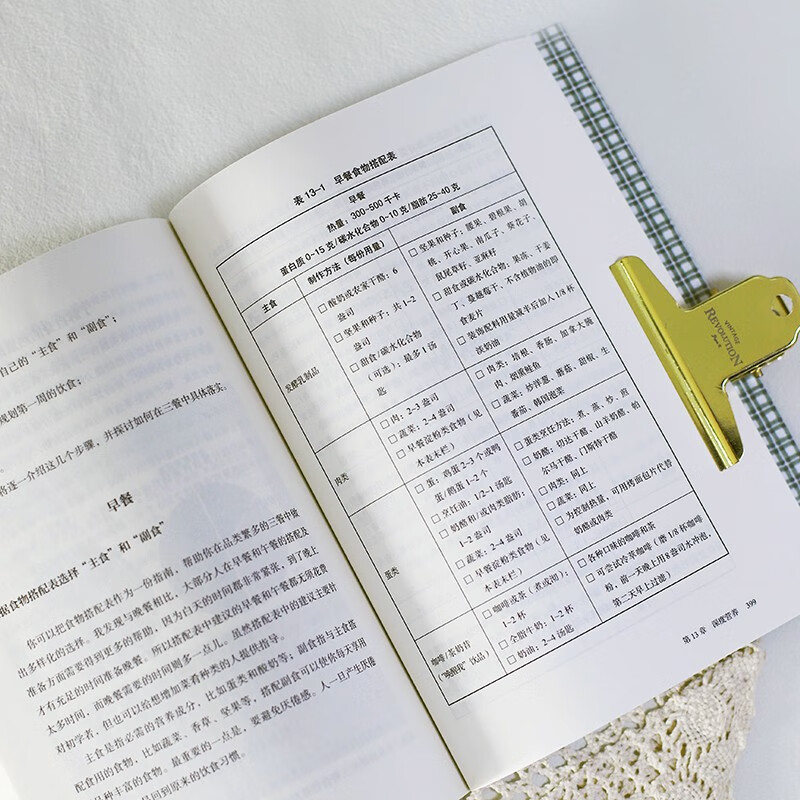 自己的“主食”和“副食”；
规划第一周的饮食；
将逐一介绍这几个步骤，并探讨如何在三餐中具体落实。
早餐
据食物搭配表选择“主食”和“副食”
你可以把食物搭配表作为一份指南，帮助你在品类繁多的三餐中做
出多样化的选择。我发现与晚餐相比，大部分人在早餐和午餐的搭配及
准备方面需要得到更多的帮助，因为白天的时间都非常紧张，到了晚上
才有充足的时间准备晚餐。所以搭配表中建议的早餐和午餐都无须花费
太多时间，而晚餐需要的时间则多一点儿。虽然搭配表中的建议主要针
对初学者，但也可以给想增加菜肴种类的人提供指导。
主食是指必需的营养成分，比如蛋类和酸奶等；副食指与主食搭
配食用的食物，比如蔬菜、香草、坚果等，搭配副食可以使你每天享用
品种丰富的食物。最重要的一点是，要避免厌倦感。人一旦产生厌倦
回到原来的饮食习惯。
表 13-1 早餐食物搭配表
早餐
热量：300-500 千卡
蛋白质 0-15 克/碳水化合物 0-10 克/脂肪 25-40 克
主食
制作方法（每份用量）
副食
发酵乳制品
□ 酸奶或农家干酪：6
盎司
□ 坚果和种子：共 1-2
盎司
□ 甜食/碳水化合物
（可选）：最多 1 汤
匙
□ 坚果和种子：腰果、碧根果、胡
桃、开心果、南瓜子、葵花子、
鼠尾草籽、亚麻籽
□ 甜食或碳水化合物：果冻、干姜
丁、蔓越莓干、不含植物油的即
食麦片
□ 装饰配料用量减半后加入 1/8 杯
淡奶油
肉类
□ 肉：2-3 盎司
□ 蔬菜：2-4 盎司
□ 早餐淀粉类食物（见
本表末栏）
□ 肉类：培根、香肠、加拿大腌
肉、烟熏鲑鱼
□ 蔬菜：炒洋葱、蘑菇、甜椒、生
番茄、韩国泡菜
蛋类
□ 蛋：鸡蛋 2-3 个或鸭
蛋/鹅蛋 1-2 个
□ 烹饪油：1/2-1 汤匙
□ 奶酪和/或肉类脂肪：
1-2 盎司
□ 蔬菜：2-4 盎司
□ 早餐淀粉类食物（见
本表末栏）
□ 蛋类烹饪方法：煮、蒸、炒、煎
□ 奶酪：切达干酪、山羊奶酪、帕
尔马干酪、门斯特干酪
□ 肉类：同上
□ 蔬菜：同上
□ 为控制热量，可用烤面包片代替
奶酪或肉类
咖啡/茶奶昔
（“唤醒我”饮品）
□ 咖啡或茶（煮或沏）：
1-2 杯
□ 全脂牛奶：1-2 杯
□ 奶油：2-4 汤匙
□ 各种口味的咖啡和茶
□ 可尝试冷萃咖啡（磨 1/8 杯咖啡
粉，前一天晚上用 8 盎司水冲泡，
第二天早上过滤）
第 13 章 深度营养 399
VINTAGE
REVOLUTION